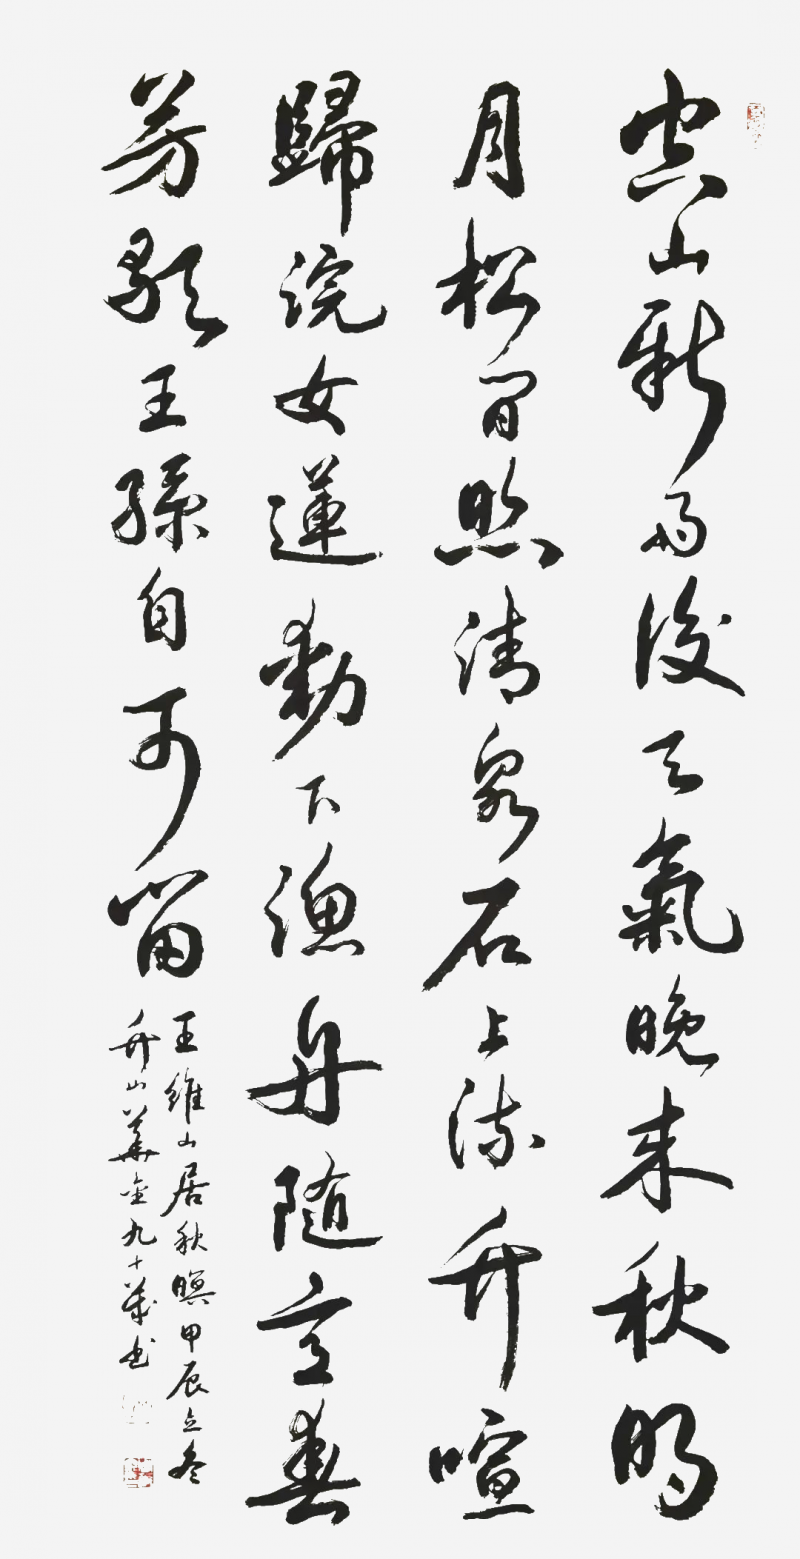 空山新雨後天氣晚來秋明
月松間照清泉石上流竹喧
歸浣女蓮動下漁舟隨意春
芳歇王孫自可留
王維山居秋暝甲辰立冬
竹山華金九十歲書